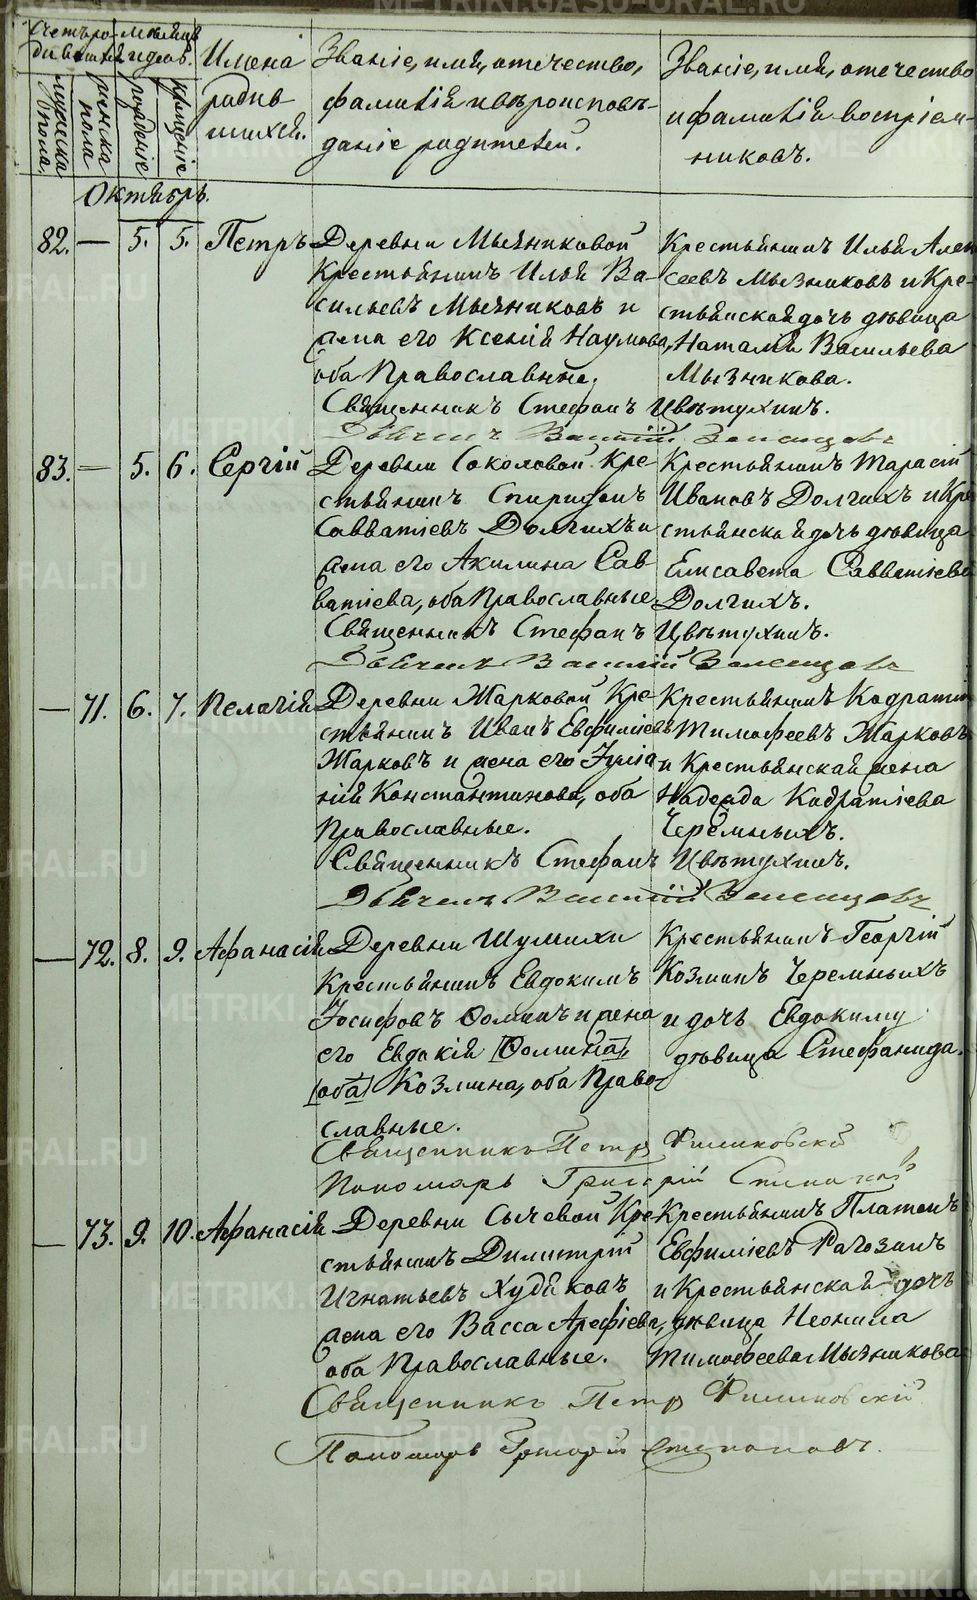 METRIKI.GASO-URAL.RU
Счетъ ро-
дившихся
Мѣсяцъ
и день.
Имена
родив-
шихся.
Званіе, имя, отечество,
фамилія и вѣроисповѣ-
даніе родителей.
Званіе, имя, отечество
и фамилія воспріем-
никовъ.
мужска
пола.
женска
пола
рожденіе
крещеніе
Октябрь.
82. — 5. 5. Петръ
Деревни Мызниковой
Крестьянинъ Илья Ва-
сильевъ Мызниковъ и
жена его Ксенія Наумова,
оба Православные.
Крестьянинъ Илья Алек
сеевъ Мызниковъ и Кре-
стьянская дочь дѣвица
Наталія Васильева
Мызникова.
Священникъ Стефанъ Цвѣтухинъ.
Дьячекъ Василій
83. — 5. 6. Сергій
Деревни Соколовой Кре-
стьянинъ Спиридонъ
Савватіевъ Долгихъ и
жена его Акилина Сав-
ватіева, оба Православные
Крестьянинъ Тарасій
Ивановъ Долгихъ и Кре
стьянская дочь дѣвица
Елисавета Савватіева
Долгихъ.
Священникъ Стефанъ Цвѣтухинъ.
Дьячекъ Василій
— 71. 6. 7. Пелагія
Деревни Жарковой Кре-
стьянинъ Иванъ Евфиміевъ
Жарковъ и жена его Іуліа
нія Константинова, оба
Православные.
Крестьянинъ Кодратій
Тимофеевъ Жарковъ
и Крестьянская жена
Надежда Кодратіева
Черемныхъ.
Священникъ Стефанъ Цвѣтухинъ.
Дьячекъ Василій
— 72. 8. 9. Афанасія
Деревни Шумихи
Крестьянинъ Евдокимъ
Іосифовъ Ѳоминъ и жена
его Евдокія [Ѳомина,
[оба] Козмина, оба Право
славные.
Крестьянинъ Георгій
Козминъ Черемныхъ
и дочь Евдокиму
дѣвица Стефанида.
Священникъ Петръ
Пономарь Григорій
— 73. 9. 10. Афанасія
Деревни Сычевой Кре
стьянинъ Димитрій
Игнатьевъ Худяковъ
жена его Васса Арефіева,
оба Православные.
Крестьянинъ Платонъ
Евфиміевъ Рагозинъ
и Крестьянская дочь
дѣвица Неонила
Тимофеева Мызникова
Священникъ Петръ
Пономарь Григорій
METRIKI.GASO-URAL.RU